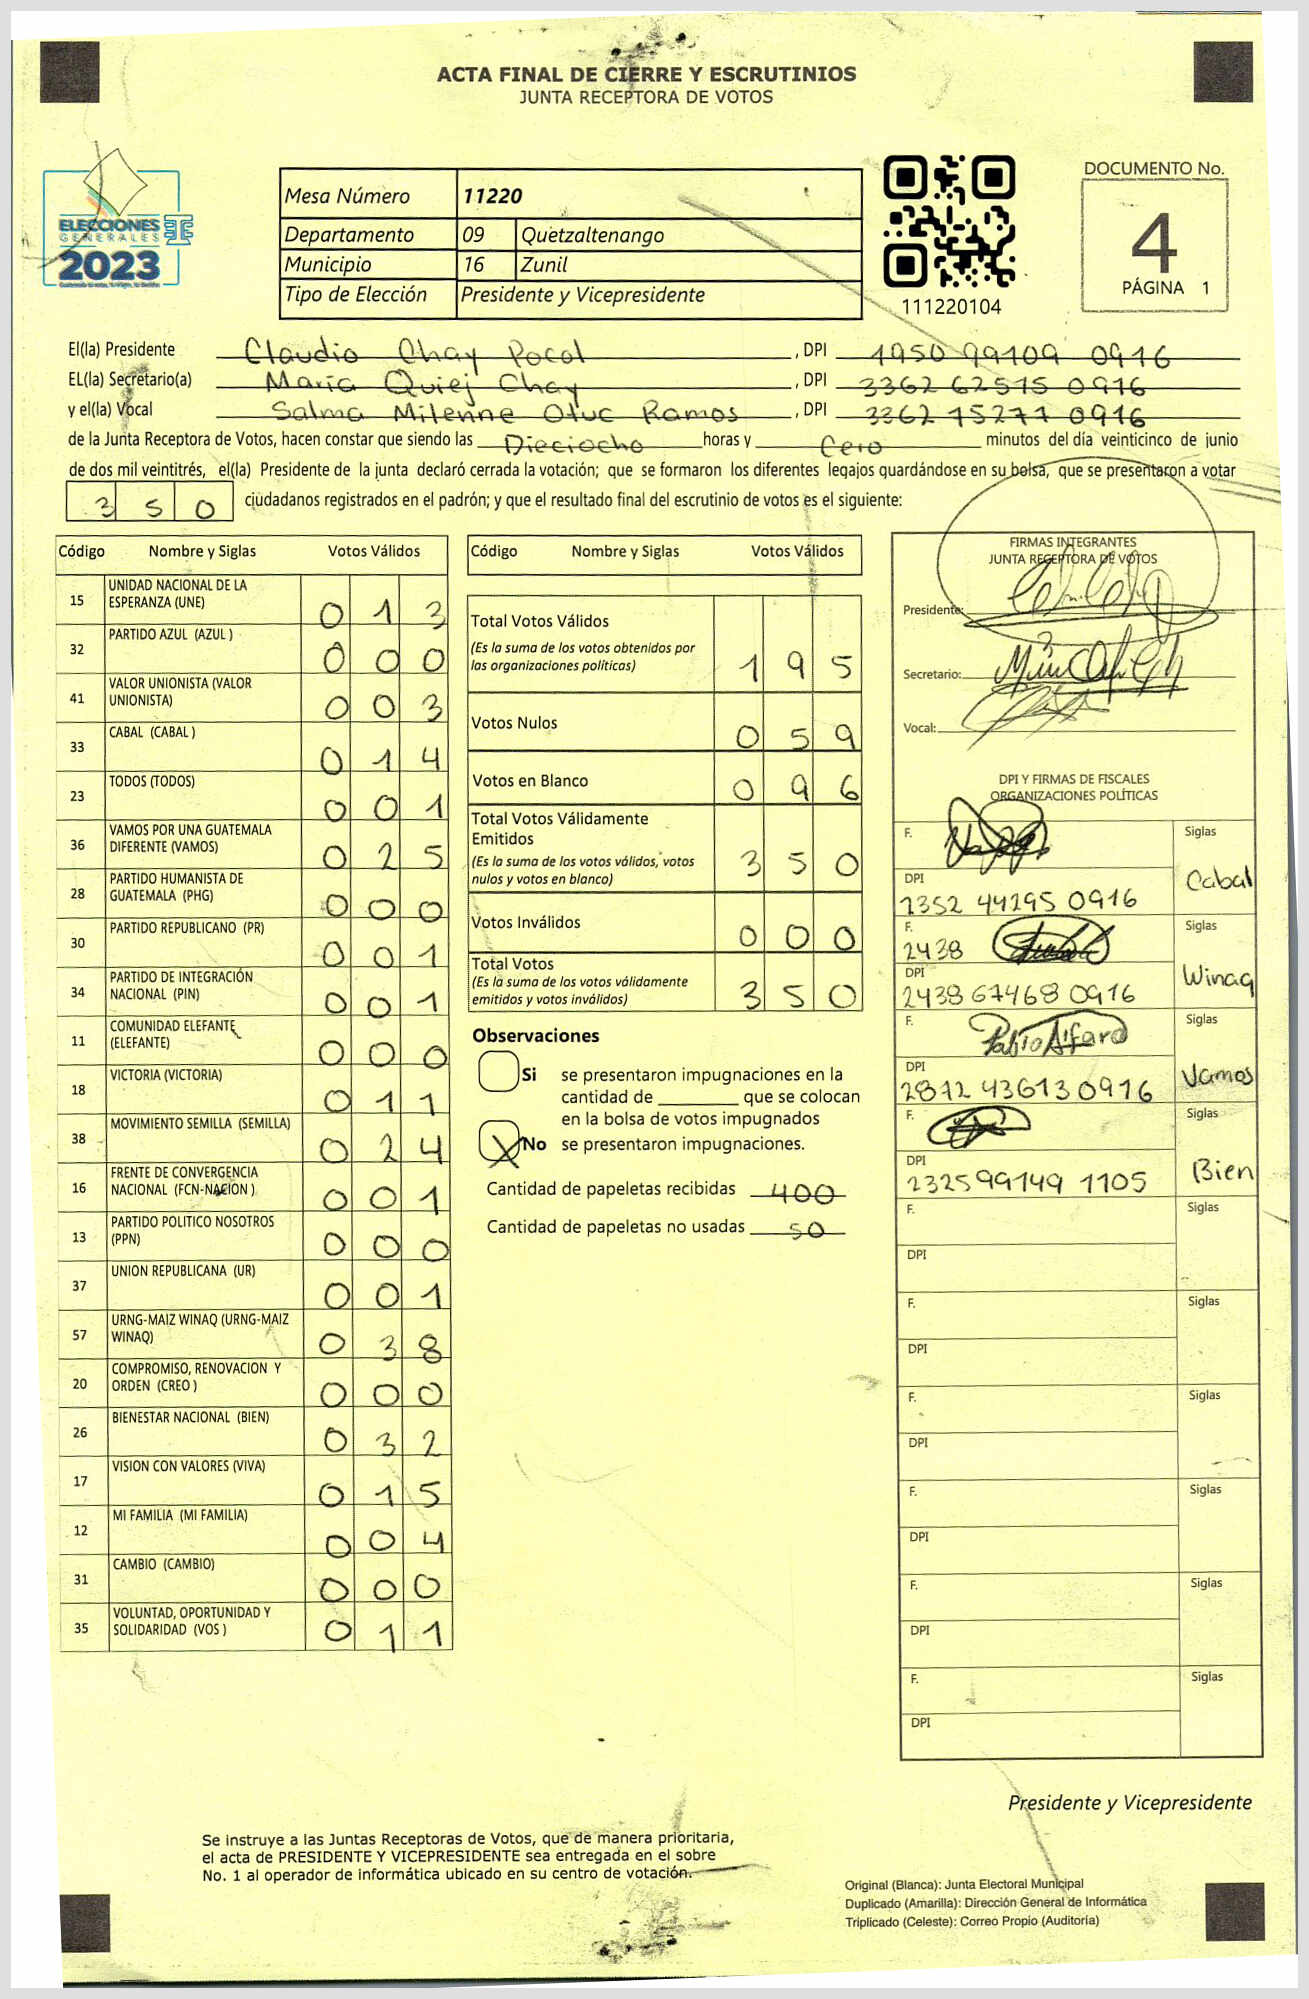 ACTA FINAL DE CIERRE Y ESCRUTINIOS
JUNTA RECEPTORA DE VOTOS
ELECCIONES
GENERALES
2023
Mesa Número 11220
Departamento 09 Quetzaltenango
Municipio 16 Zunil
Tipo de Elección Presidente y Vicepresidente
111220104
DOCUMENTO No.
4
PÁGINA 1
El(la) Presidente Claudio Chay Pocol, DPI 1950 99109 0916
EL(la) Secretario(a) María Quiej Chay, DPI 3362 62515 0916
y el(la) Vocal Salma Milenne Otuc Ramos, DPI 3362 75277 0916
de la Junta Receptora de Votos, hacen constar que siendo las Dieciocho horas y Cero minutos del día veinticinco de junio
de dos mil veintitrés, el(la) Presidente de la junta declaró cerrada la votación; que se formaron los diferentes legajos guardándose en su bolsa, que se presentaron a votar
350 ciudadanos registrados en el padrón; y que el resultado final del escrutinio de votos es el siguiente:
Código Nombre y Siglas Votos Válidos
15 UNIDAD NACIONAL DE LA ESPERANZA (UNE) 013
32 PARTIDO AZUL (AZUL ) 000
41 VALOR UNIONISTA (VALOR UNIONISTA) 003
33 CABAL (CABAL ) 014
23 TODOS (TODOS) 001
36 VAMOS POR UNA GUATEMALA DIFERENTE (VAMOS) 025
28 PARTIDO HUMANISTA DE GUATEMALA (PHG) 000
30 PARTIDO REPUBLICANO (PR) 001
34 PARTIDO DE INTEGRACIÓN NACIONAL (PIN) 001
11 COMUNIDAD ELEFANTE (ELEFANTE) 000
18 VICTORIA (VICTORIA) 011
38 MOVIMIENTO SEMILLA (SEMILLA) 024
16 FRENTE DE CONVERGENCIA NACIONAL (FCN-NACION ) 001
13 PARTIDO POLITICO NOSOTROS (PPN) 000
37 UNION REPUBLICANA (UR) 001
57 URNG-MAIZ WINAQ (URNG-MAIZ WINAQ) 038
20 COMPROMISO, RENOVACION Y ORDEN (CREO ) 000
26 BIENESTAR NACIONAL (BIEN) 032
17 VISION CON VALORES (VIVA) 015
12 MI FAMILIA (MI FAMILIA) 004
31 CAMBIO (CAMBIO) 000
35 VOLUNTAD, OPORTUNIDAD Y SOLIDARIDAD (VOS ) 011
Código Nombre y Siglas Votos Válidos
Total Votos Válidos 195
(Es la suma de los votos obtenidos por
las organizaciones políticas)
Votos Nulos 059
Votos en Blanco 096
Total Votos Válidamente
Emitidos 350
(Es la suma de los votos válidos, votos
nulos y votos en blanco)
Votos Inválidos 000
Total Votos 350
(Es la suma de los votos válidamente
emitidos y votos inválidos)
Observaciones
Si se presentaron impugnaciones en la
cantidad de ________ que se colocan
en la bolsa de votos impugnados
X No se presentaron impugnaciones.
Cantidad de papeletas recibidas 400
Cantidad de papeletas no usadas 50
FIRMAS INTEGRANTES
JUNTA RECEPTORA DE VOTOS
Presidente:
Secretario:
Vocal:
DPI Y FIRMAS DE FISCALES
ORGANIZACIONES POLÍTICAS
F. Siglas
Cabal
DPI
2352 44295 0916
F. Siglas
2438
Winaq
DPI
2438 67468 0916
F. Pablo Alfaro Siglas
Vamos
DPI
2872 43613 0916
F. Siglas
Bien
DPI
2325 99149 1105
F. Siglas
DPI
F. Siglas
DPI
F. Siglas
DPI
F. Siglas
DPI
F. Siglas
DPI
F. Siglas
DPI
Presidente y Vicepresidente
Se instruye a las Juntas Receptoras de Votos, que de manera prioritaria,
el acta de PRESIDENTE Y VICEPRESIDENTE sea entregada en el sobre
No. 1 al operador de informática ubicado en su centro de votación.
Original (Blanca): Junta Electoral Municipal
Duplicado (Amarilla): Dirección General de Informática
Triplicado (Celeste): Correo Propio (Auditoría)